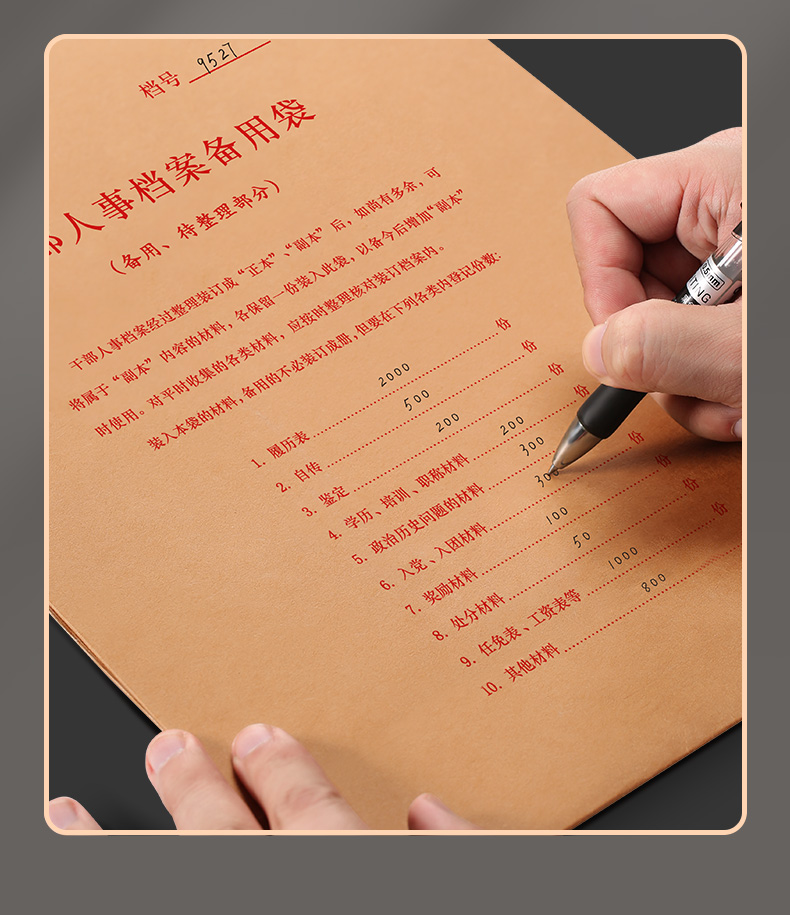 档号 9527
部人事档案备用袋
（备用、待整理部分）
干部人事档案经过整理装订成“正本”、“副本”后，如尚有多余，可
将属于“副本”内容的材料，各保留一份装入此袋，以备今后增加“副本”
时使用。对平时收集的各类材料，应按时整理核对装订档案内。
装入本袋的材料，备用的不必装订成册，但要在下列各类内登记份数：
1. 履历表 2000 份
2. 自传 500 份
3. 鉴定 200 份
4. 学历、培训、职称材料 200 份
5. 政治历史问题的材料 300
6. 入党、入团材料 300 份
7. 奖励材料 100 份
8. 处分材料 50 份
9. 任免表、工资表等 1000 份
10. 其他材料 800
0.5mm
TING